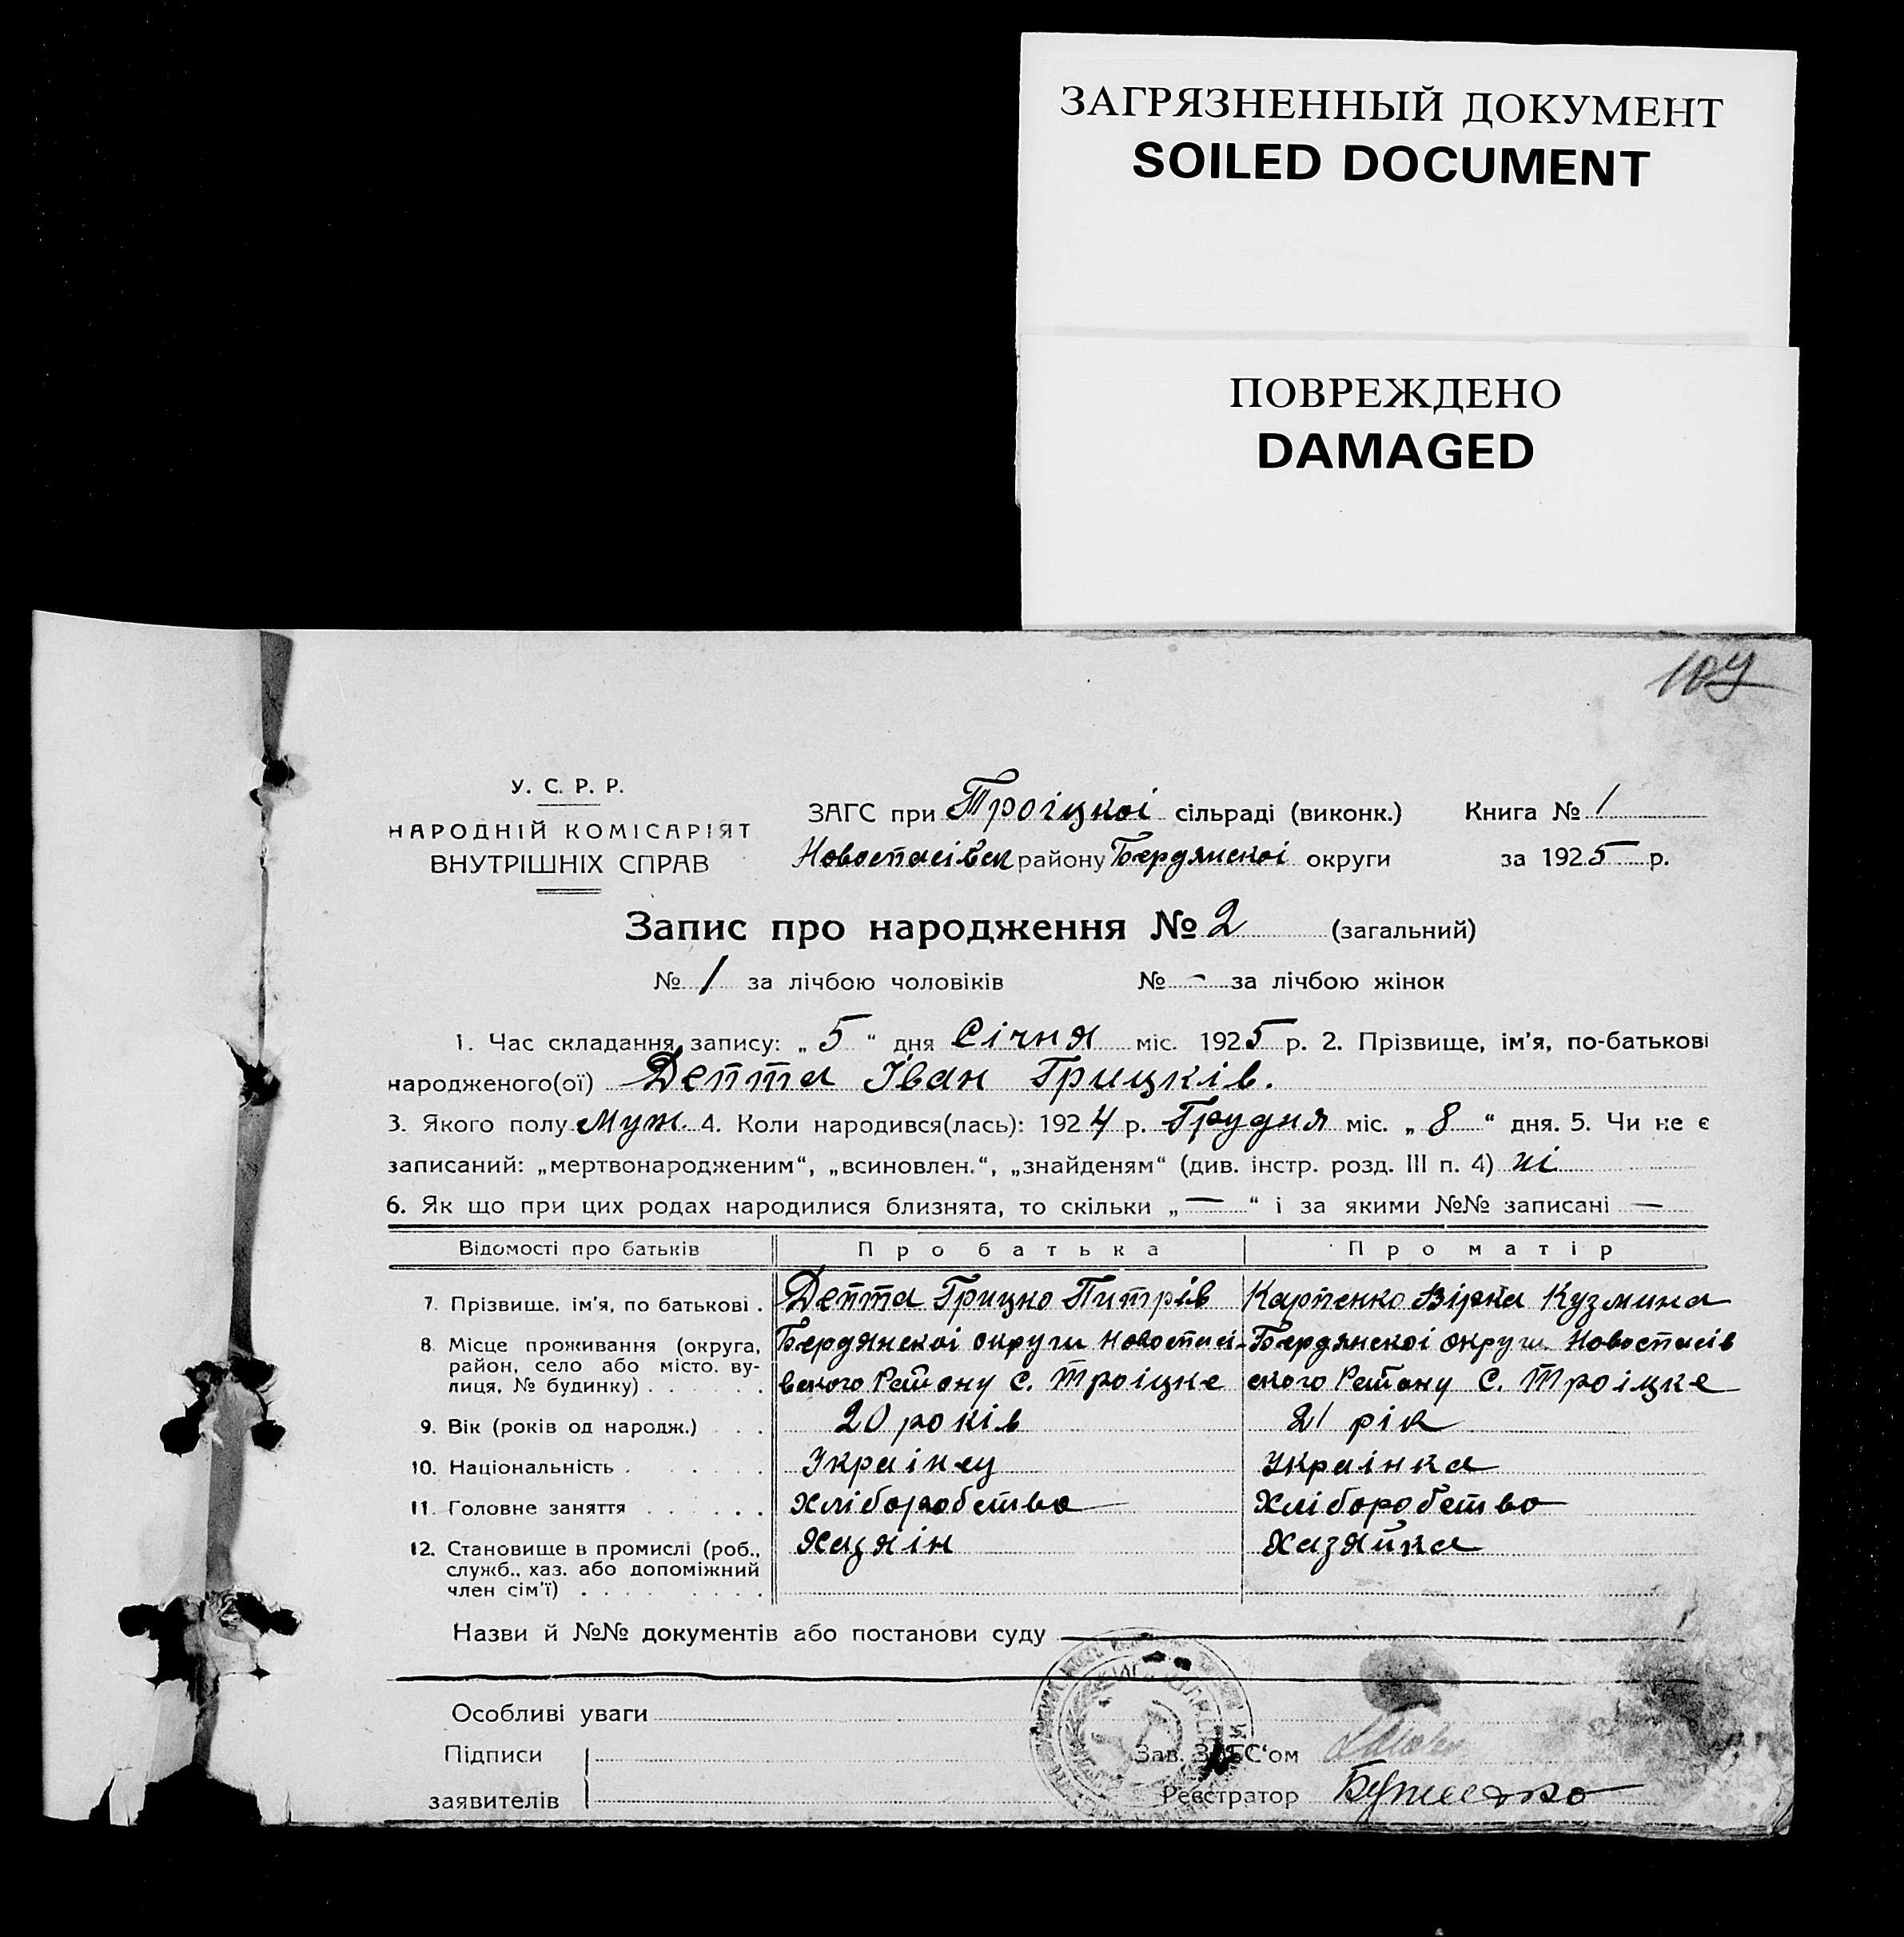 ЗАГРЯЗНЕННЫЙ ДОКУМЕНТ
SOILED DOCUMENT
ПОВРЕЖДЕНО
DAMAGED
У. С. Р. Р.
НАРОДНІЙ КОМІСАРІЯТ
ВНУТРІШНІХ СПРАВ
ЗАГС при Троіцкоі сільраді (виконк.) Книга № 1
Новоспасівск району Бердянскоі округи за 1925 р.
Запис про народження № 2 (загальний)
№ 1 за лічбою чоловіків № - за лічбою жінок
1. Час складання запису: „ 5 “ дня Січня міс. 1925 р. 2. Прізвище, ім'я, по-батькові
народженого(ої) Депта Іван Грицків.
3. Якого полу Муж. 4. Коли народився(лась): 1924 р. Грудня міс. „ 8 “ дня. 5. Чи не є
записаний: „мертвонародженим“, „всиновлен.“, „знайденям“ (див. інстр. розд. III п. 4) ні
6. Як що при цих родах народилися близнята, то скільки „ — “ і за якими №№ записані —
Відомості про батьків Про батька Про матір
7. Прізвище, ім'я, по батькові . Депта Грицко Питрів Карпенко Вірка Кузмина
8. Місце проживання (округа, Бердянскоі округи Новоспасі- Бердянскоі округи. Новоспасів
район, село або місто, ву-
лиця, № будинку) . . . . . . вского Району С. Троіцке ского Району С. Троіцке
9. Вік (років од народж.) . . . 20 років 21 рік
10. Національність . . . . . Украінец Украінка
11. Головне заняття . . . . . . Хліборобство Хліборобство
12. Становище в промислі (роб., Хазяін Хазяйка
служб., хаз. або допоміжний
член сім'ї) . . . . . . .
Назви й №№ документів або постанови суду
Особливі уваги
Підписи Зав. ЗАГС'ом
заявителів Реєстратор